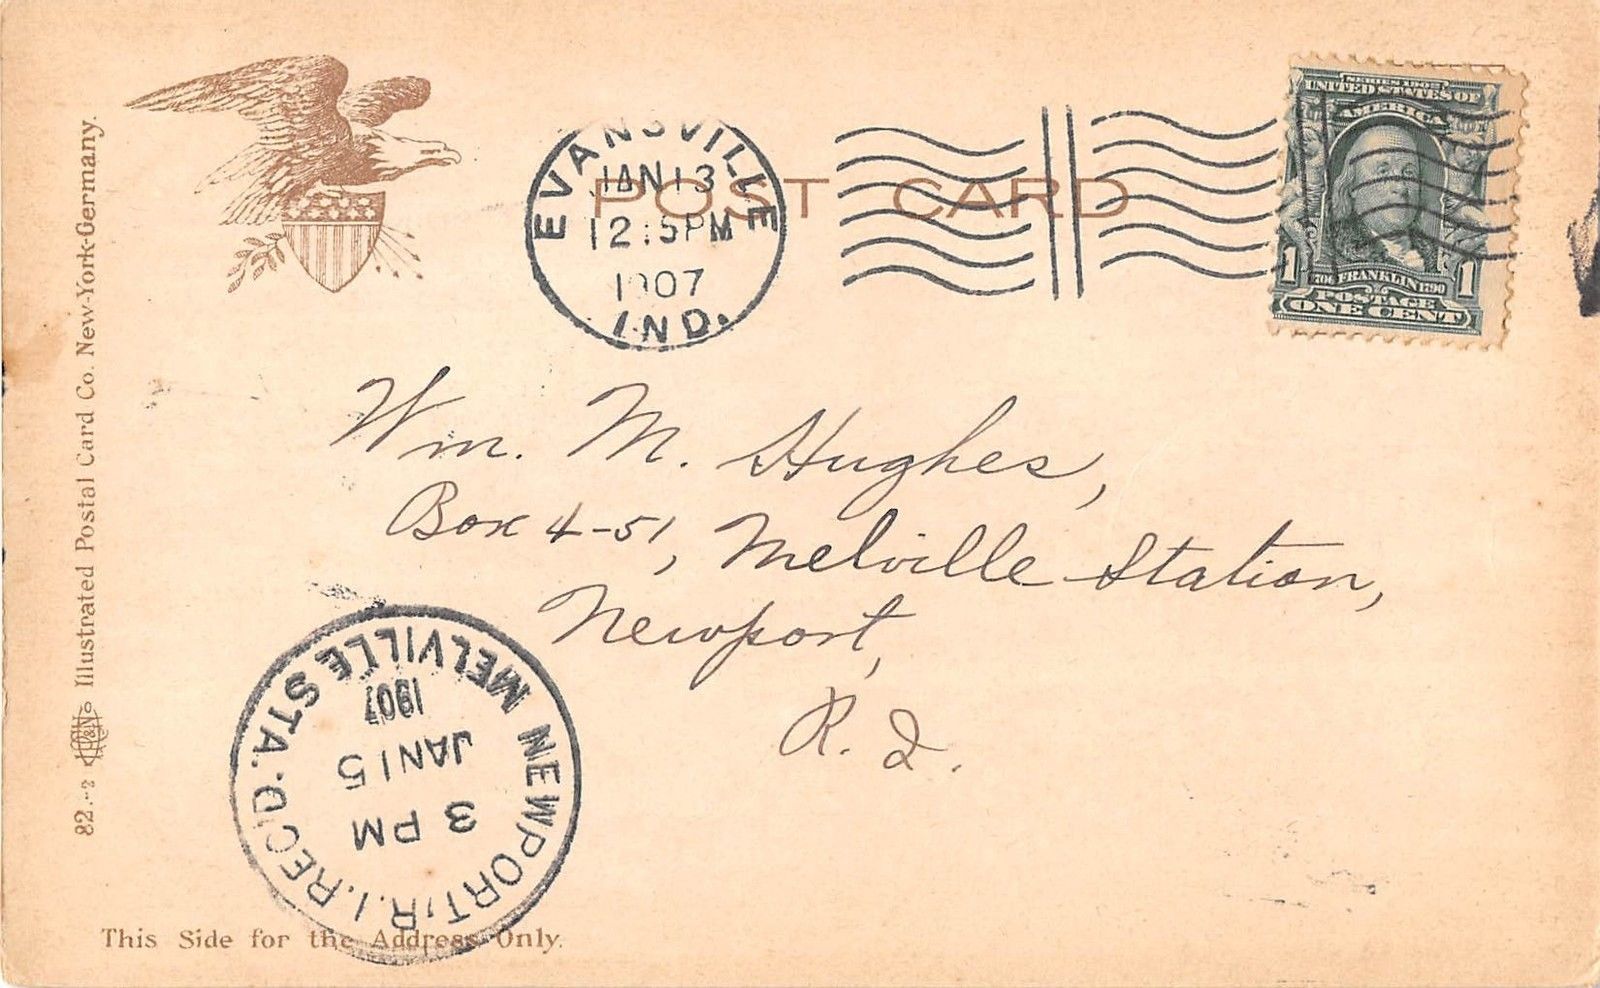 POST CARD
EVANSVILLE
JAN 13
12:15PM
1907
IND.
SERIES 1902
UNITED STATES OF
AMERICA
1706 FRANKLIN 1790
1 1
POSTAGE
ONE CENT
Wm. M. Hughes,
Box 4-51, Melville Station,
Newport,
R. I.
NEWPORT, R.I. REC'D.
MELVILLE STA.
3 PM
JAN 15
1907
82.-2
Illustrated Postal Card Co. New-York-Germany.
This Side for the Address Only.